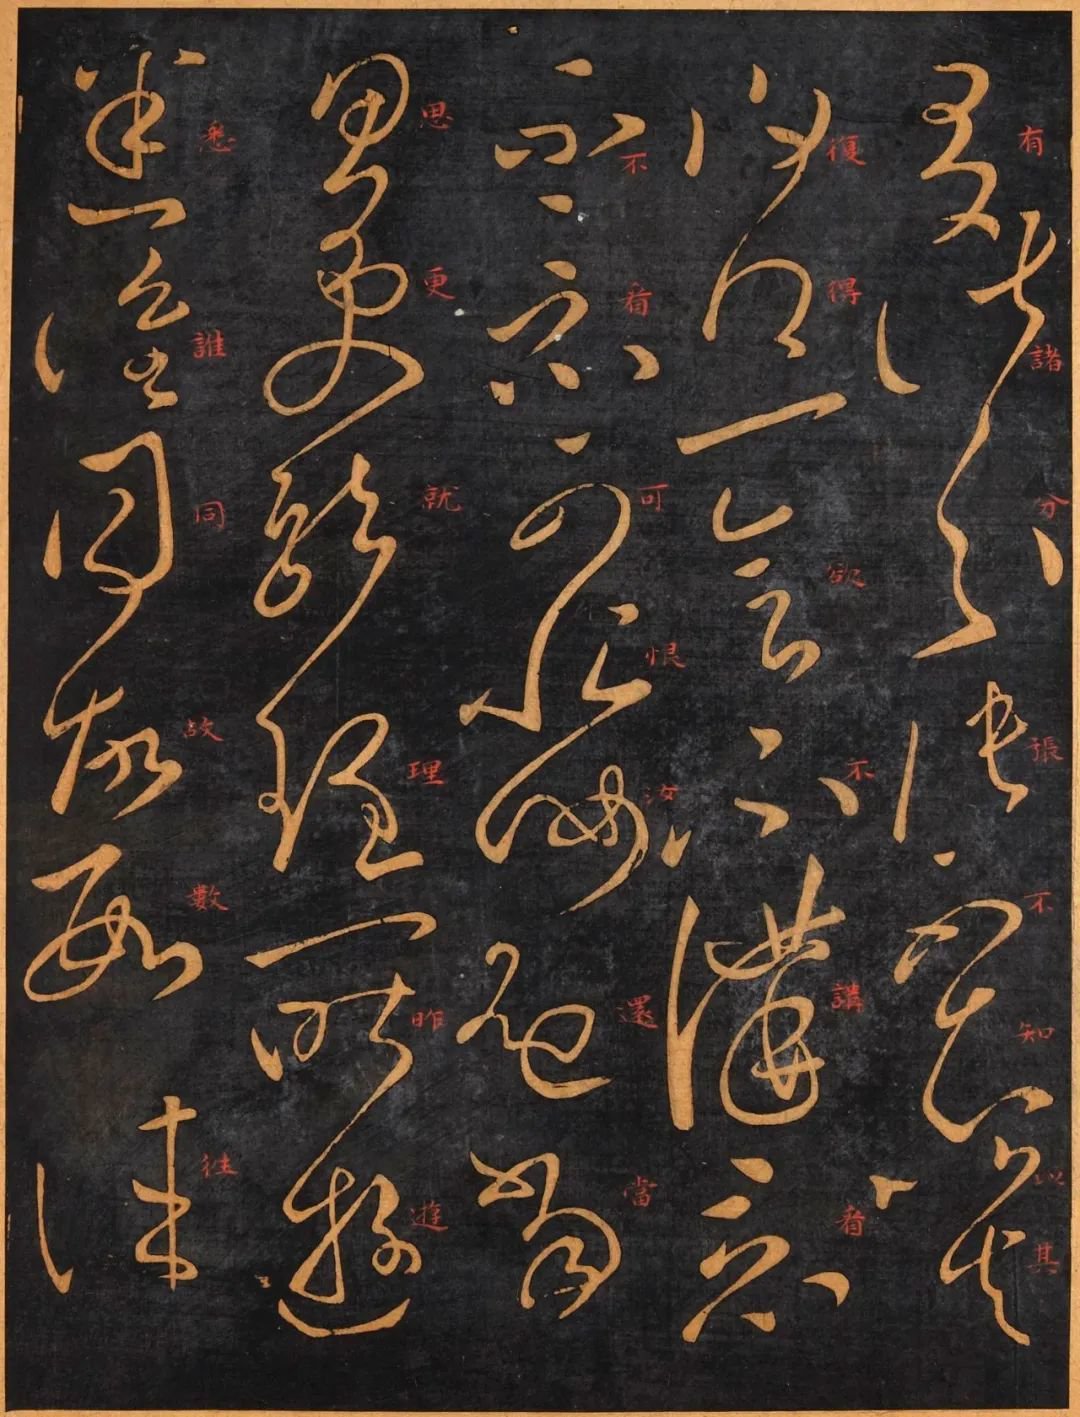 有諸分張不知以其
復得欲不講者
不看可恨汝還當
思更就理昨遊
愁誰同故數往